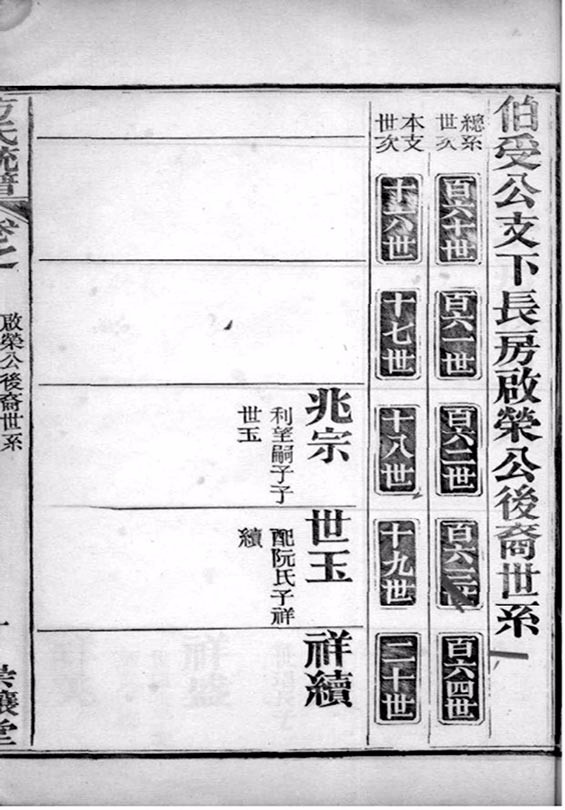 伯受公支下長房啟榮公後裔世系
總系世次
百六十世
百六一世
百六二世
百六三世
百六四世
本支世次
十六世
十七世
十八世
十九世
二十世
兆宗
利望嗣子子
世玉
世玉
配阮氏子祥
續
祥續
方氏統譜
卷之
啟榮公後裔世系